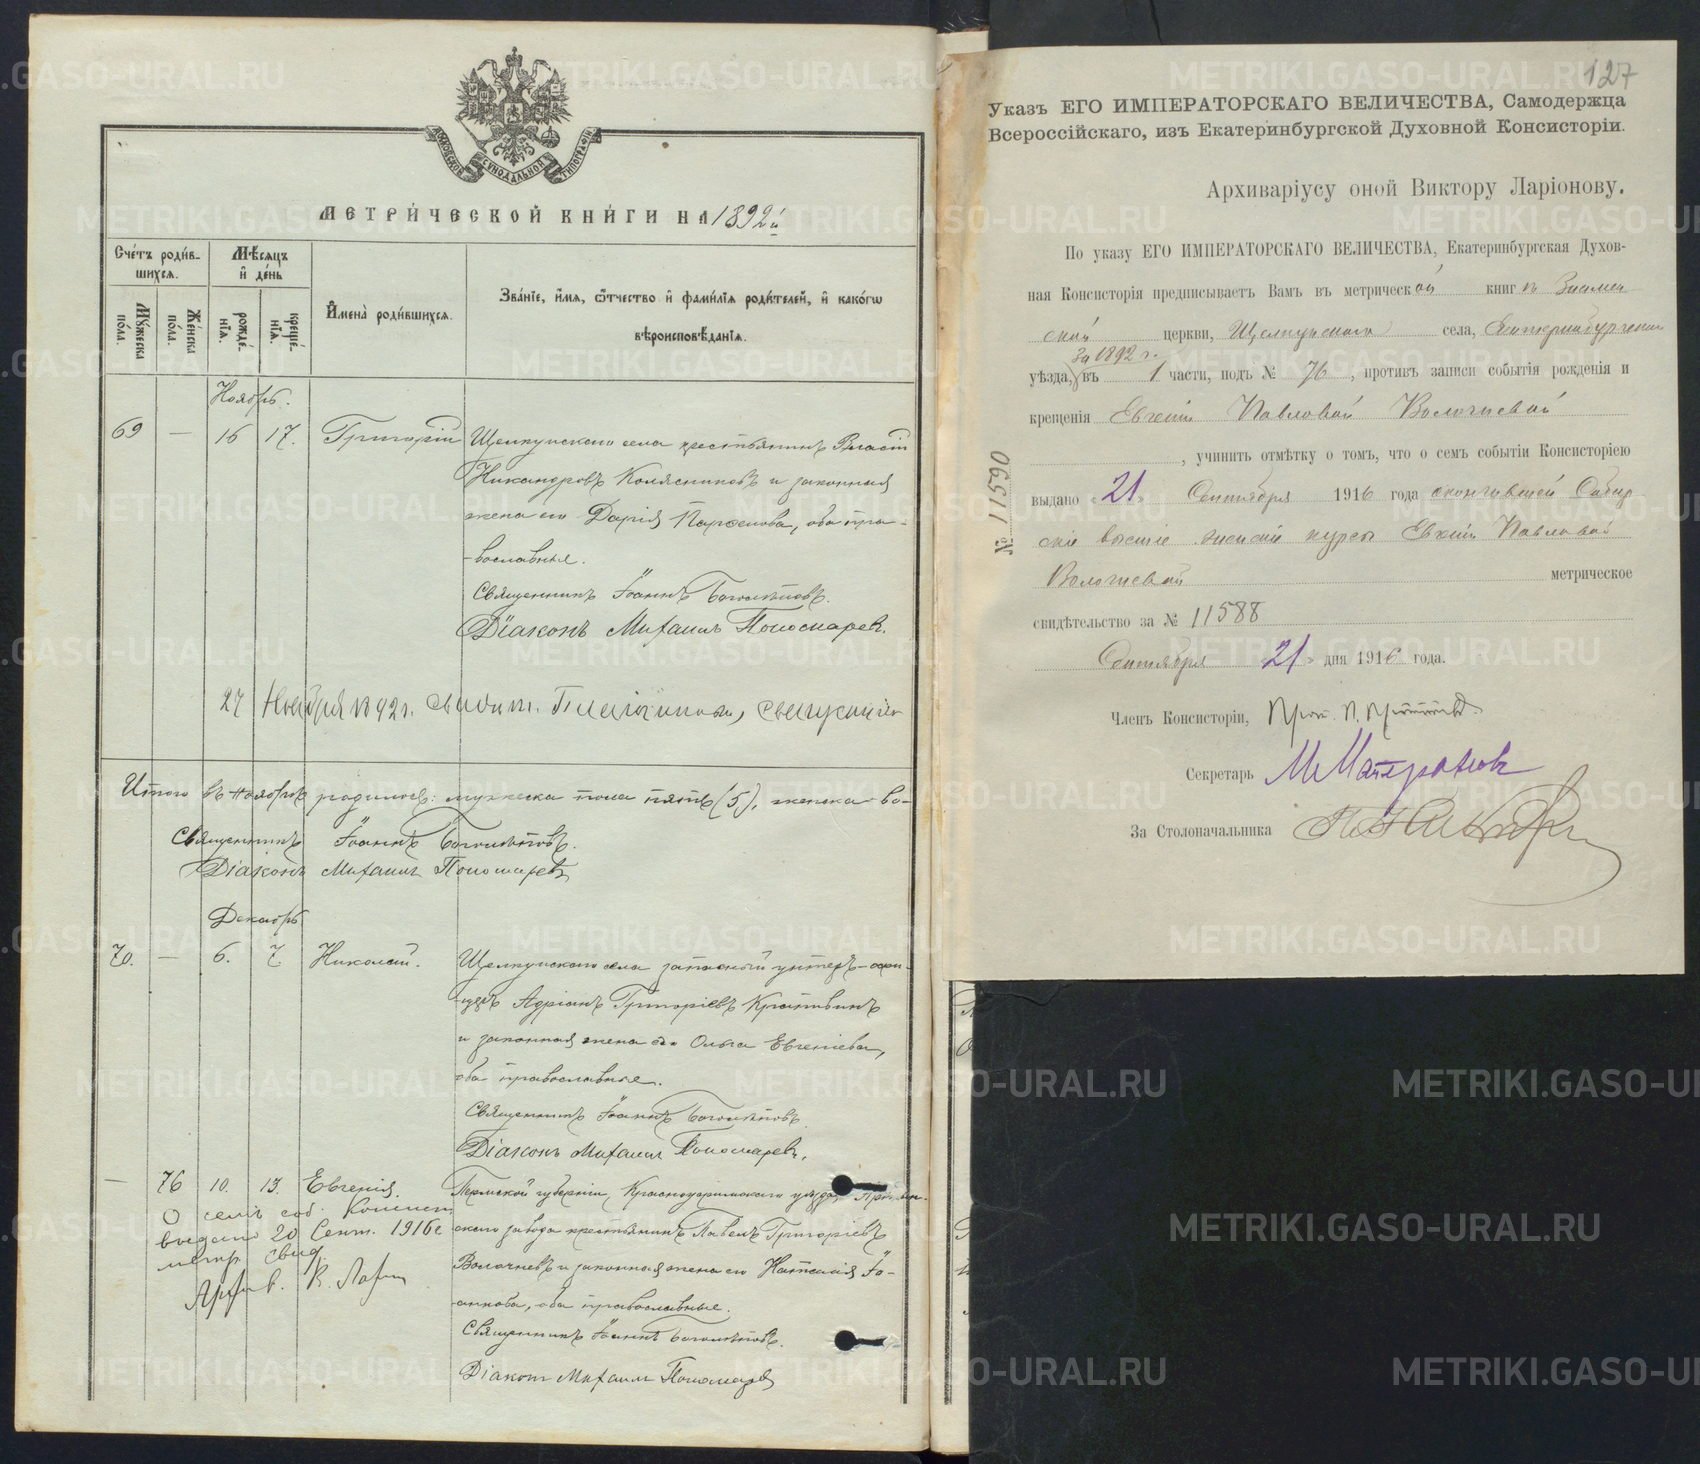 МОСКОВСКОЙ СѴНОДАЛЬНОЙ ТИПОГРАФІИ
МЕТРИ́ЧЕСКОЙ КНИ́ГИ НА 1892й
Сче́тъ роди́в-
шихся.
Мѣ́сяцъ
и҆ де́нь
Му́жеска по́ла.
Же́нска по́ла.
рожде́-
нїя.
креще́-
нїя.
И҆мена̀ роди́вшихся.
Зва́нїе, и҆́мя, ѻ҆́тчество и҆ фами́лїя роди́телей, и҆ како́гѡ
вѣроисповѣ́данїя.
Ноябрь.
69 — 16 17. Григорій Щелкунскаго села крестьянинъ Власій
Никандровъ Колясниковъ и законная
жена его Дарія Парѳенова, оба пра-
вославные.
Священникъ Іоаннъ Боголѣповъ.
Діаконъ Михаилъ Пономаревъ.
27 Ноября 1892 г.
Итого въ Ноябрѣ родилось: мужеска пола пять (5), женска во-
Священникъ Іоаннъ Боголѣповъ.
Діаконъ Михаилъ Пономаревъ
Декабрь
70. — 6. 7. Николай. Щелкунскаго села запасный унтеръ-офи-
церъ Адріанъ Григоріевъ Крапивинъ
и законная жена его Ольга Евгеніева,
оба православные.
Священникъ Іоаннъ Боголѣповъ.
Діаконъ Михаилъ Пономаревъ.
— 76 10. 13. Евгенія. Пермской губерніи, Красноуфимскаго уѣзда, Артин-
скаго завода крестьянинъ Павелъ Григоріевъ
Волочневъ и законная жена его Наталія Іо-
аннова, оба православные.
Священникъ Іоаннъ Боголѣповъ.
Діаконъ Михаилъ Пономаревъ
О семъ соб. Консист.
выдано 20 Сент. 1916 г
метр. свид.
Архив. В. Ларі
127
Указъ ЕГО ИМПЕРАТОРСКАГО ВЕЛИЧЕСТВА, Самодержца
Всероссійскаго, изъ Екатеринбургской Духовной Консисторіи.
Архиваріусу оной Виктору Ларіонову.
По указу ЕГО ИМПЕРАТОРСКАГО ВЕЛИЧЕСТВА, Екатеринбургская Духов-
ная Консисторія предписываетъ Вамъ въ метрической книгѣ Знамен
ской церкви, Щелкунскаго села, Екатеринбургскаго
за 1892 г.
уѣзда, въ 1 части, подъ № 76, противъ записи событія рожденія и
крещенія Евгеніи Павловой Волочневой
, учинить отмѣтку о томъ, что о семъ событіи Консисторіею
выдано «21» Сентября 1916 года окончившей Сибир
скіе высшіе женскіе курсы Евгеніи Павловой
Волочневой метрическое
свидѣтельство за № 11588
Сентября «21» дня 1916 года.
№ 11590
Членъ Консисторіи, Прот. П.
Секретарь М
За Столоначальника
METRIKI.GASO-URAL.RU